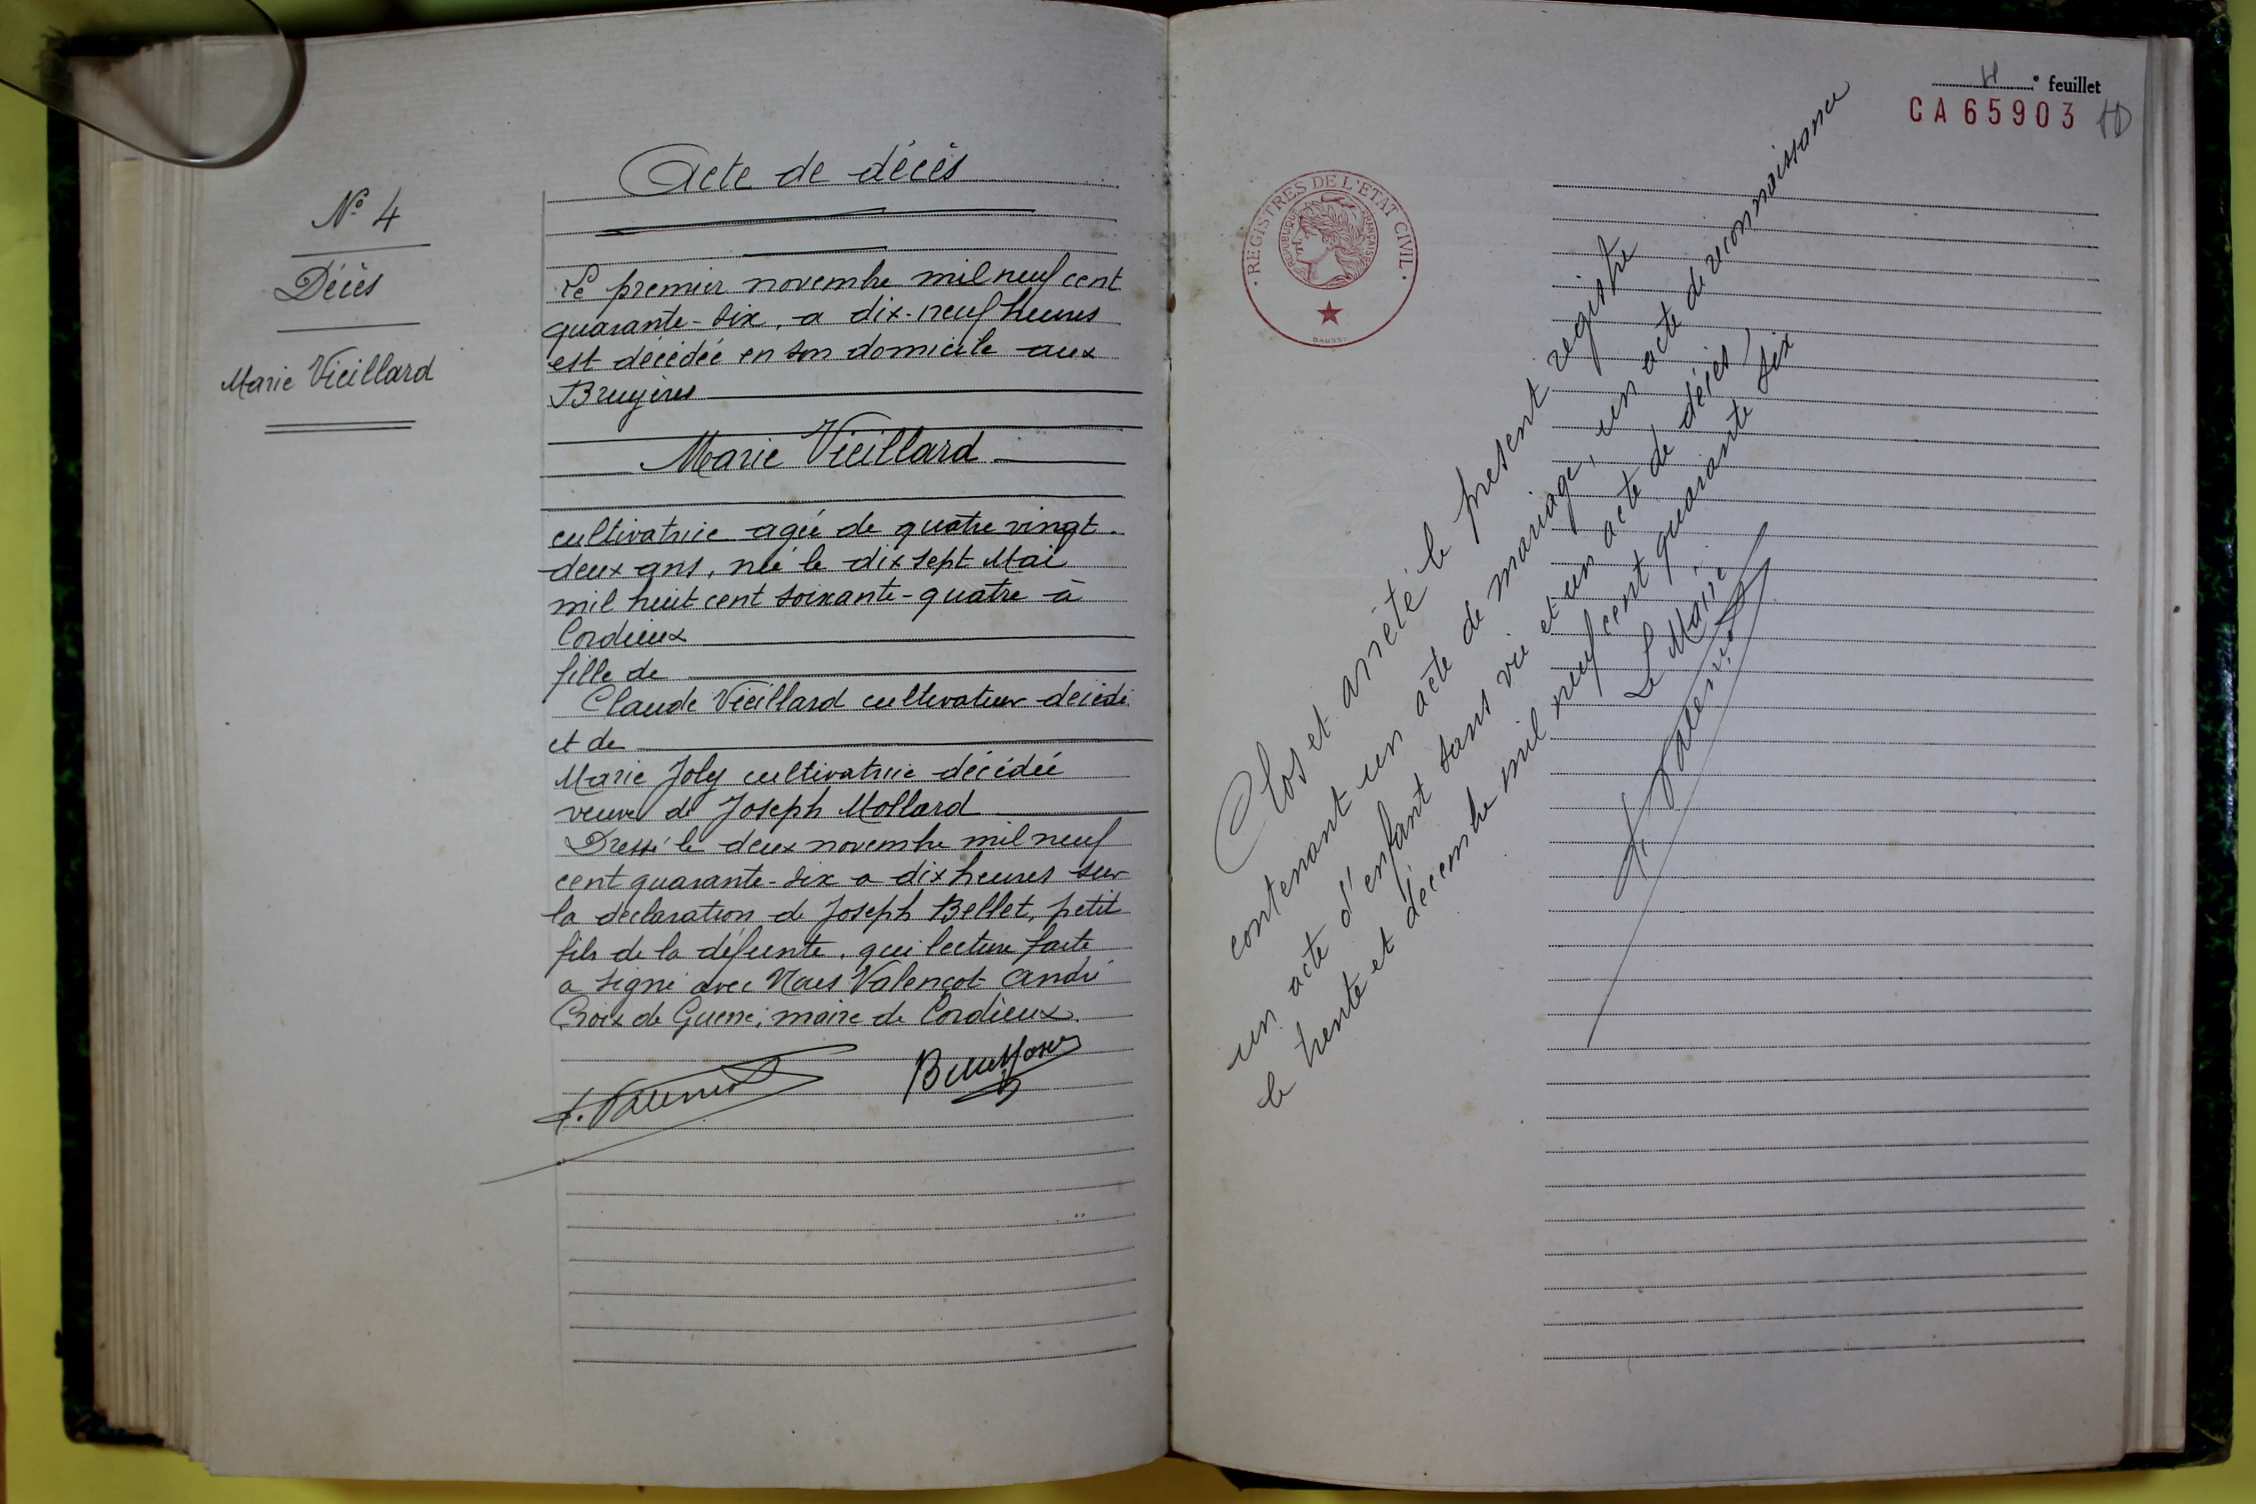 Acte de décès
N° 4
Décès
Marie Vieillard
Le premier novembre mil neuf cent
quarante-six, a dix-neuf heures
est décédée en son domicile aux
Bruyères
Marie Vieillard
cultivatrice agée de quatre vingt-
deux ans, née le dix sept Mai
mil huit cent soixante-quatre à
Cordieux
fille de
Claude Vieillard cultivateur décédé
et de
Marie Joly cultivatrice décédée
veuve de Joseph Mollard
Dressé le deux novembre mil neuf
cent quarante-six a dix heures sur
la déclaration de Joseph Bellet, petit
fils de la défunte, qui lecture faite
a signé avec Nous Valençot André
Croix de Guerre, maire de Cordieux.
4° feuillet
CA65903
REGISTRES DE L'ETAT CIVIL
REPUBLIQUE FRANÇAISE
Clos et arrêté le présent registre
contenant un acte de mariage, un acte de reconnaissance
un acte d'enfant sans vie et un acte de décès
le trente et décembre mil neuf cent quarante six
Le Maire